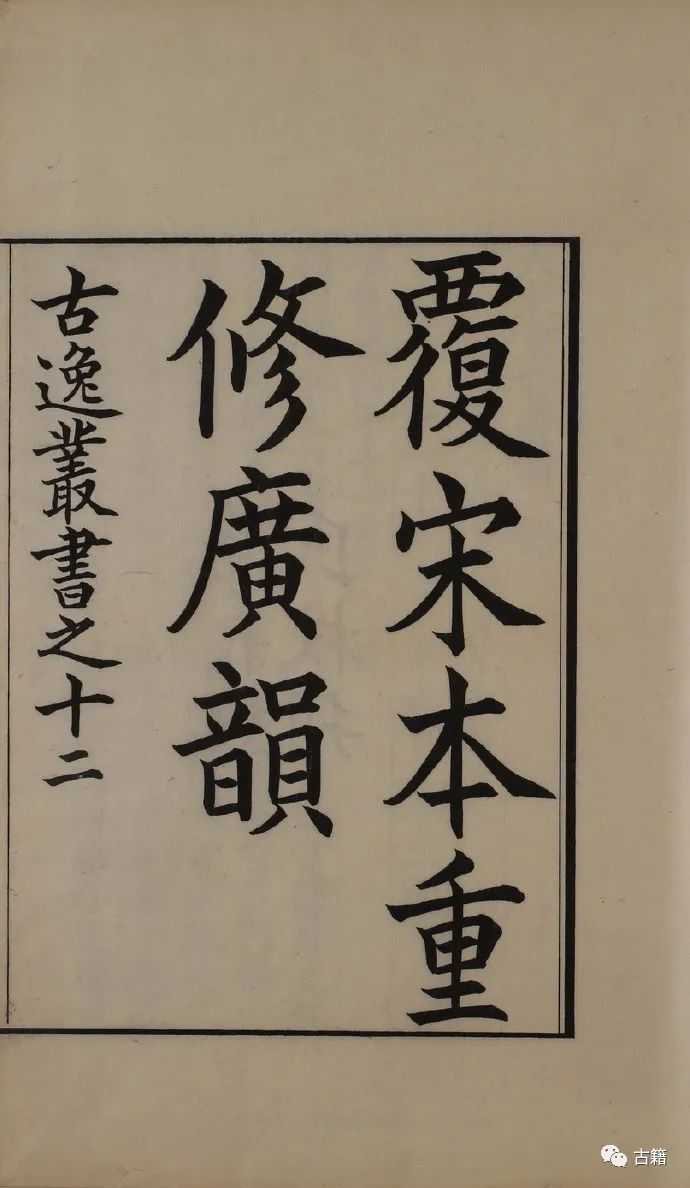 覆宋本重
修廣韻
古逸叢書之十二
古籍